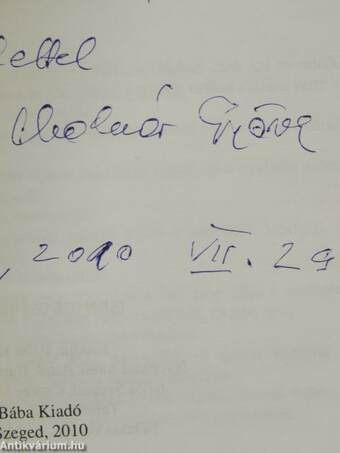 lettel
Molnár György
, 2010 VII. 29
Bába Kiadó
Szeged, 2010
Antikvárium.hu